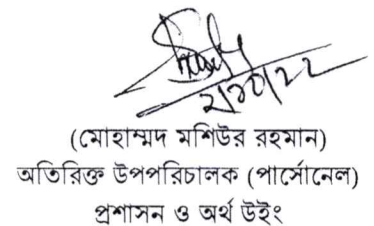 ২/১০/২২
(মোহাম্মদ মশিউর রহমান)
অতিরিক্ত উপপরিচালক (পার্সোনেল)
প্রশাসন ও অর্থ উইং